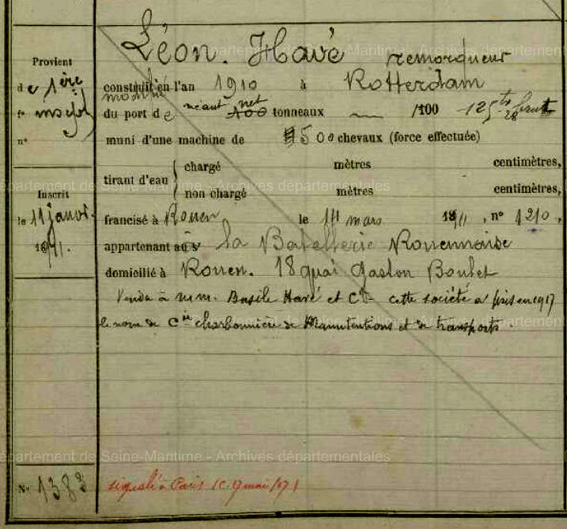 Léon. Havé remorqueur
Provient
de 1ère
inscript
n°
construit en l'an 1910 à Rotterdam
du port de néant net 100 tonneaux /100 125 tx 28 brut
muni d'une machine de 500 chevaux (force effectuée)
tirant d'eau { chargé mètres centimètres,
non chargé mètres centimètres,
Inscrit
le 11 janvr.
1911.
francisé à Rouen le 1er mars 1911, n° 1210,
appartenant à la Batellerie Rouennaise
domicilié à Rouen. 18 quai Gaston Boulet
Vendu à MM. Basile Havé et Cie cette société a pris en 1917
le nom de Cie charbonnière de Manutentions et de transports.
Département de Seine-Maritime - Archives départementales
N° 1382
signalé à Paris (C. 9 mai 1917)